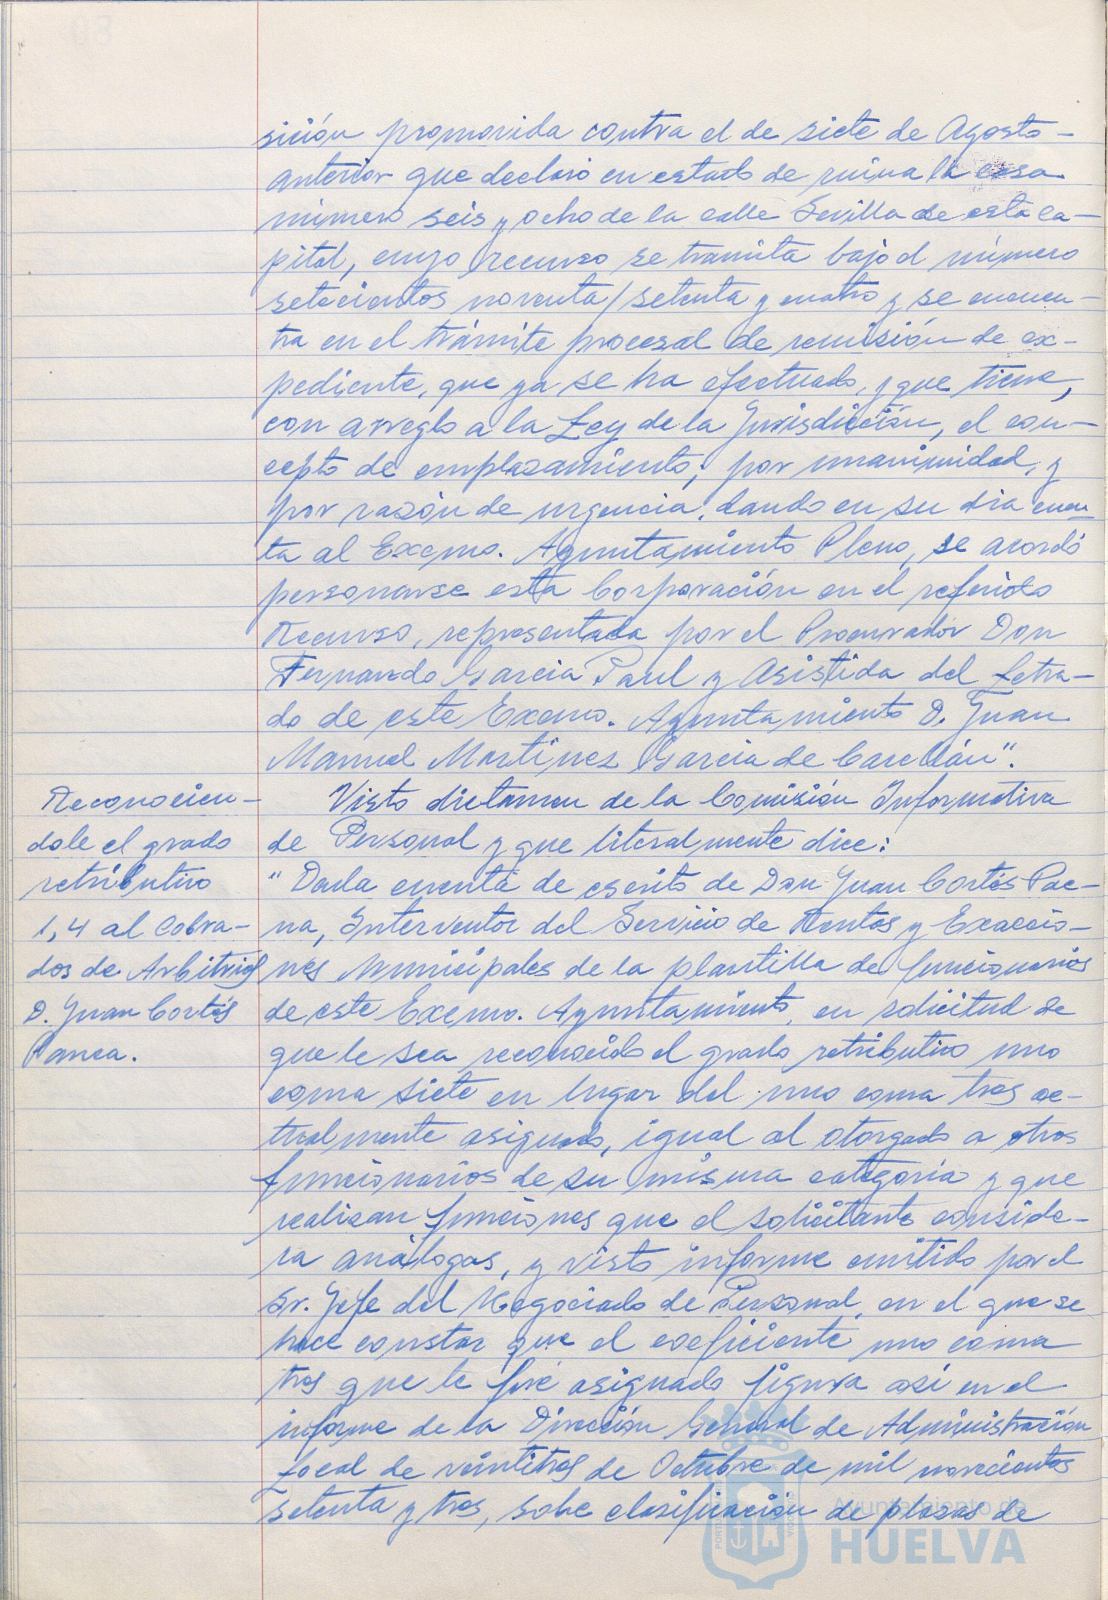 sición promovida contra el de siete de Agosto
anterior que declaró en estado de ruina la casa
número seis y ocho de la calle Sevilla de esta ca-
pital, cuyo recurso se tramita bajo el número
setecientos noventa/setenta y cuatro y se encuen-
tra en el trámite procesal de remisión de ex-
pediente, que ya se ha efectuado, y que tiene,
con arreglo a la Ley de la Jurisdicción, el con-
cepto de emplazamiento; por unanimidad, y
por razón de urgencia, dando en su dia cuen-
ta al Excmo. Ayuntamiento Pleno, se acordó
personarse esta Corporación en el referido
Recurso, representada por el Procurador Don
Fernando Garcia Paul y Asistida del Letra-
do de este Excmo. Ayuntamiento D. Juan
Manuel Martínez Garcia de
Reconocien-
dole el grado
retributivo
1,4 al Cobra-
dos de Arbitrios
D. Juan Cortés
Panea.
Visto dictamen de la Comisión Informativa
de Personal y que literalmente dice:
"Dada cuenta de escrito de Don Juan Cortés Pae-
na, Interventor del Servicio de Rentas y Exaccio-
nes Municipales de la plantilla de funcionarios
de este Excmo. Ayuntamiento, en solicitud de
que le sea reconocido el grado retributivo uno
coma siete en lugar del uno coma tres ac-
tualmente asignado, igual al otorgado a otros
funcionarios de su misma categoria y que
realizan funciones que el solicitante conside-
ra análogas, y visto informe emitido por el
Sr. Jefe del Negociado de Personal, en el que se
hace constar que el coeficiente uno coma
tres que le fué asignado figura asi en el
informe de la Dirección General de Administración
Local de veintitres de Octubre de mil novecientos
setenta y tres, sobre clasificación de plazas de
Ayuntamiento de
HUELVA